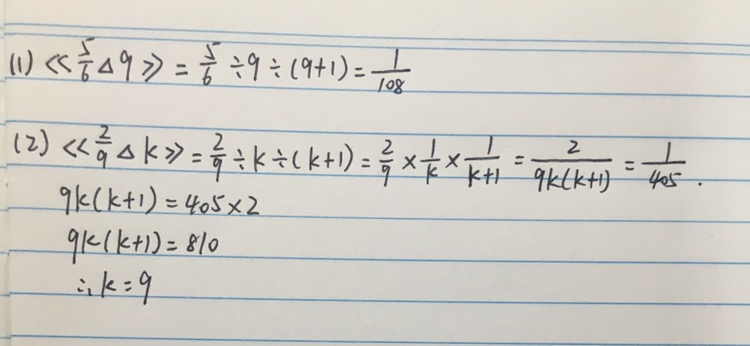 (1) <<5/6 △ 9>> = 5/6 ÷ 9 ÷ (9+1) = 1/108
(2) <<2/9 △ k>> = 2/9 ÷ k ÷ (k+1) = 2/9 × 1/k × 1/(k+1) = 2/(9k(k+1)) = 1/405 .
9k(k+1) = 405×2
9k(k+1) = 810
∴ k = 9